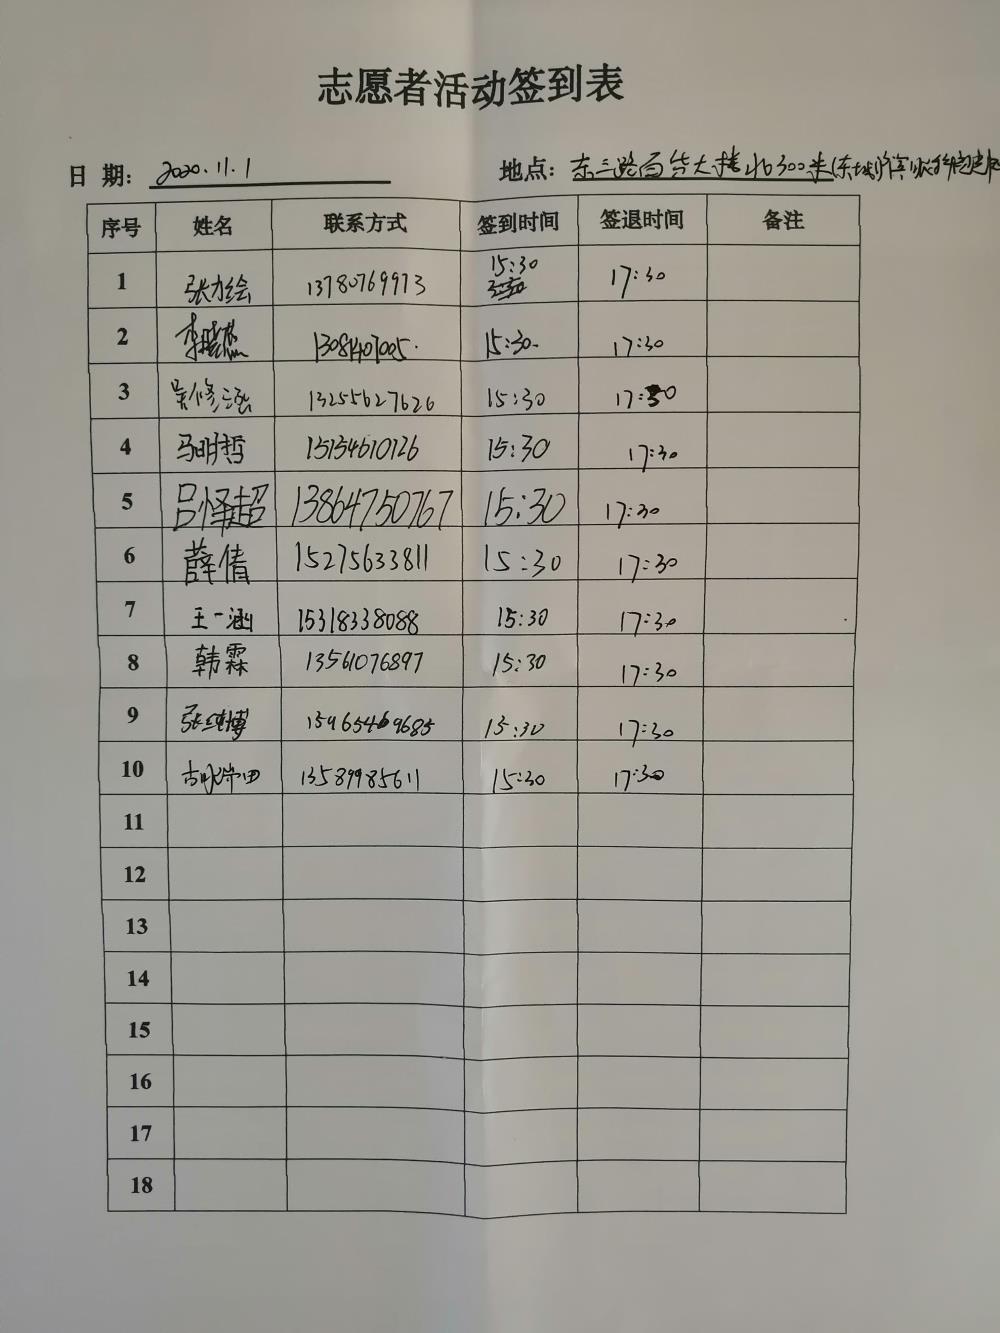 志愿者活动签到表
日 期: 2020.11.1 地点: 东三路百货大楼北300米(东城
序号 姓名 联系方式 签到时间 签退时间 备注
1 张力绘 13780769973 15:30 17:30
2 李晓燕 13081407005. 15:30. 17:30
3 吴修涵 13255627626 15:30 17:30
4 马明哲 15154610126 15:30 17:30
5 吕怿超 13864750767 15:30 17:30
6 薛倩 15275633811 15:30 17:30
7 王一涵 15318338088 15:30 17:30
8 韩霖 13561076897 15:30 17:30
9 张博 15965469685 15:30 17:30
10 田 13589985611 15:30 17:30
11
12
13
14
15
16
17
18